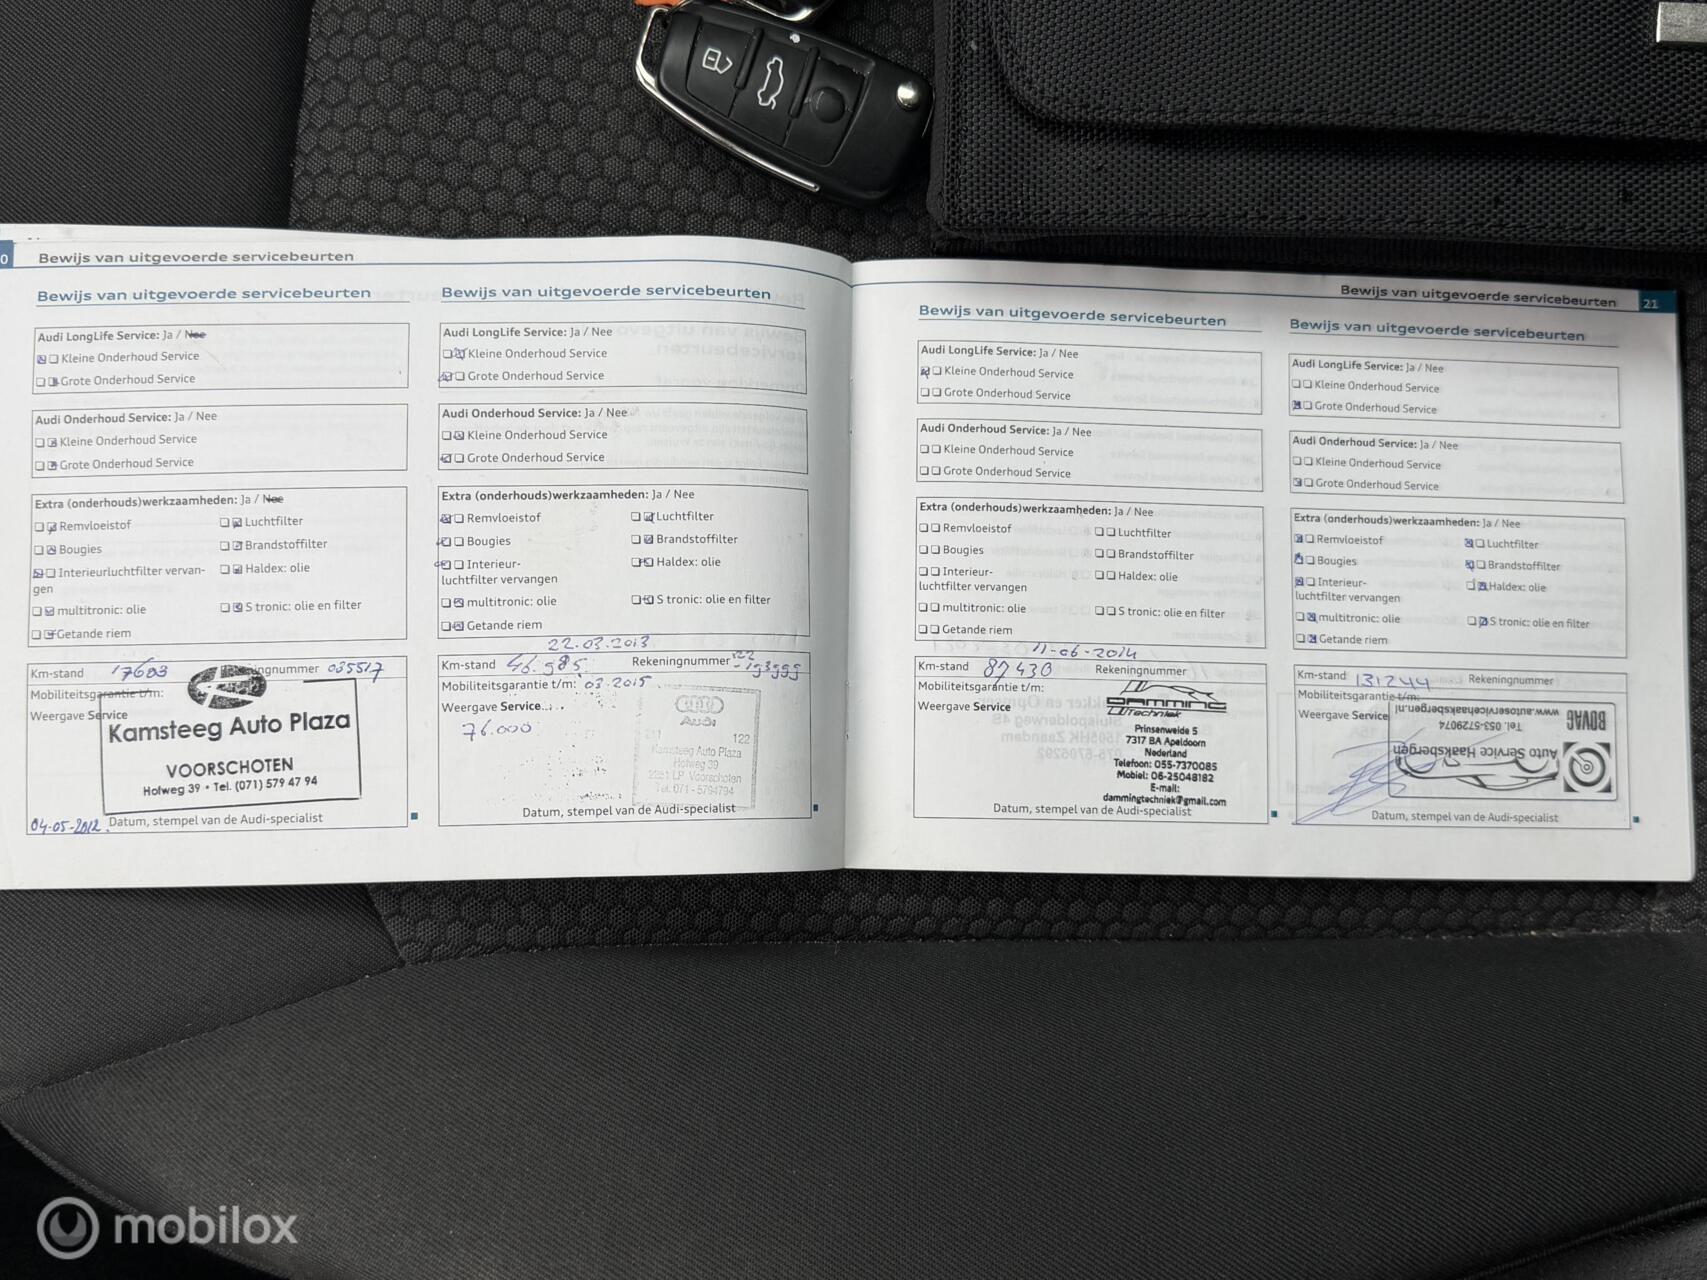 0
Bewijs van uitgevoerde servicebeurten
Bewijs van uitgevoerde servicebeurten
Audi LongLife Service: Ja / Nee
Kleine Onderhoud Service
Grote Onderhoud Service
Audi Onderhoud Service: Ja / Nee
Kleine Onderhoud Service
Grote Onderhoud Service
Extra (onderhouds)werkzaamheden: Ja / Nee
Remvloeistof
Luchtfilter
Bougies
Brandstoffilter
Interieurluchtfilter vervan-
gen
Haldex: olie
multitronic: olie
S tronic: olie en filter
Getande riem
Km-stand 17603
Rekeningnummer 035517
Mobiliteitsgarantie t/m:
Weergave Service
Kamsteeg Auto Plaza
VOORSCHOTEN
Hofweg 39 • Tel. (071) 579 47 94
04-05-2012. Datum, stempel van de Audi-specialist
Bewijs van uitgevoerde servicebeurten
Audi LongLife Service: Ja / Nee
Kleine Onderhoud Service
Grote Onderhoud Service
Audi Onderhoud Service: Ja / Nee
Kleine Onderhoud Service
Grote Onderhoud Service
Extra (onderhouds)werkzaamheden: Ja / Nee
Remvloeistof
Luchtfilter
Bougies
Brandstoffilter
Interieur-
luchtfilter vervangen
Haldex: olie
multitronic: olie
S tronic: olie en filter
Getande riem
22.03.2013
Km-stand 46.985
Rekeningnummer
Mobiliteitsgarantie t/m: 03.2015
Weergave Service...
76.000
Audi
122
Kamsteeg Auto Plaza
Hofweg 39
2251 LP Voorschoten
Tel. 071 - 5794794
Datum, stempel van de Audi-specialist
Bewijs van uitgevoerde servicebeurten
21
Bewijs van uitgevoerde servicebeurten
Audi LongLife Service: Ja / Nee
Kleine Onderhoud Service
Grote Onderhoud Service
Audi Onderhoud Service: Ja / Nee
Kleine Onderhoud Service
Grote Onderhoud Service
Extra (onderhouds)werkzaamheden: Ja / Nee
Remvloeistof
Luchtfilter
Bougies
Brandstoffilter
Interieur-
luchtfilter vervangen
Haldex: olie
multitronic: olie
S tronic: olie en filter
Getande riem
11-06-2014
Km-stand 87430
Rekeningnummer
Mobiliteitsgarantie t/m:
Weergave Service
DAMMING
Techniek
Prinsenweide 5
7317 BA Apeldoorn
Nederland
Telefoon: 055-7370085
Mobiel: 06-25048182
E-mail:
dammingtechniek@gmail.com
Datum, stempel van de Audi-specialist
Bewijs van uitgevoerde servicebeurten
Audi LongLife Service: Ja / Nee
Kleine Onderhoud Service
Grote Onderhoud Service
Audi Onderhoud Service: Ja / Nee
Kleine Onderhoud Service
Grote Onderhoud Service
Extra (onderhouds)werkzaamheden: Ja / Nee
Remvloeistof
Luchtfilter
Bougies
Brandstoffilter
Interieur-
luchtfilter vervangen
Haldex: olie
multitronic: olie
S tronic: olie en filter
Getande riem
Km-stand 131244
Rekeningnummer
Mobiliteitsgarantie t/m:
Weergave Service
BOVAG
www.autoservicehaaksbergen.nl
Tel. 053-5729074
Auto Service Haaksbergen
Datum, stempel van de Audi-specialist
mobilox